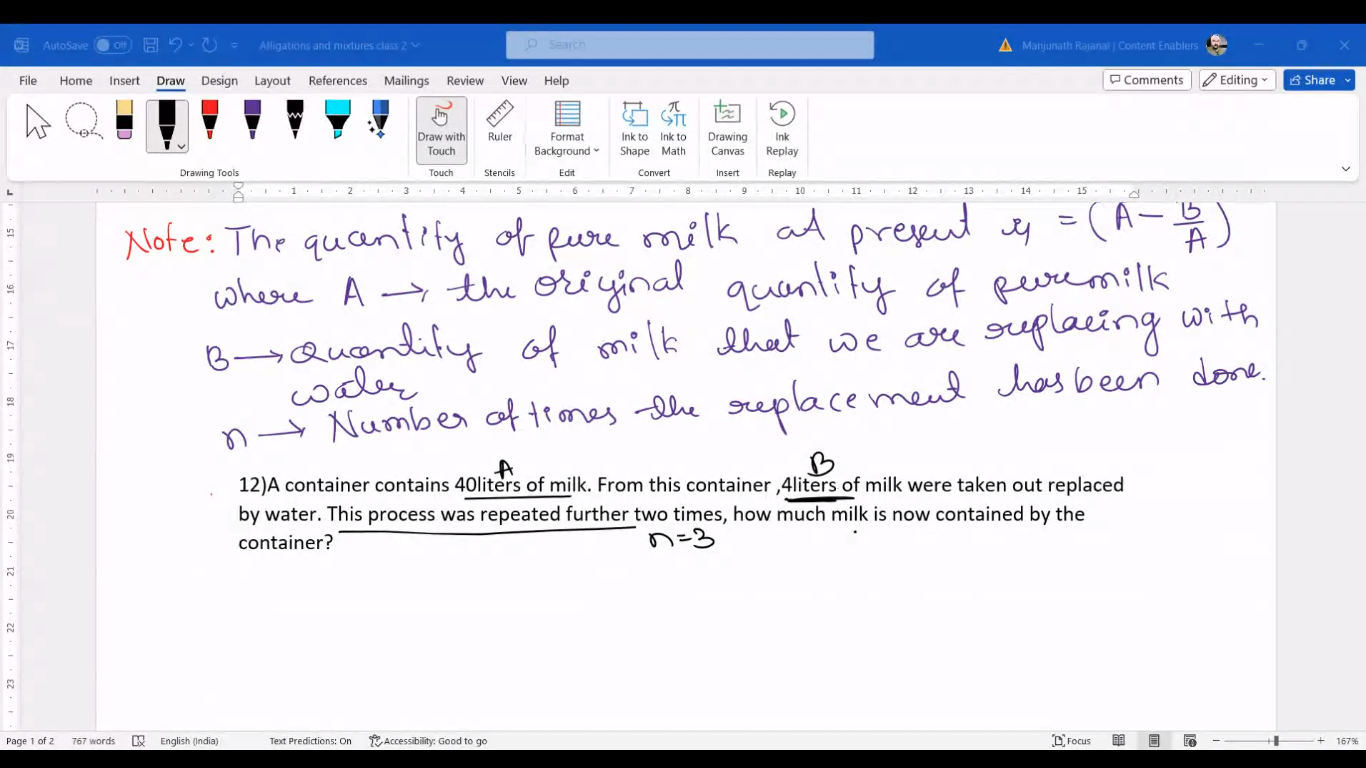 AutoSave Off Alligations and mixtures class 2 Search Manjunath Rajanal | Content Enablers
File Home Insert Draw Design Layout References Mailings Review View Help Comments Editing Share
Draw with Touch Ruler Format Background Ink to Shape Ink to Math Drawing Canvas Ink Replay
Drawing Tools Touch Stencils Edit Convert Insert Replay
1 2 3 4 5 6 7 8 9 10 11 12 13 14 15
15
16
17
18
19
21
22
23
Note: The quantity of pure milk at present is = (A - B/A)
where A → the original quantity of pure milk
B → Quantity of milk that we are replacing with
water
n → Number of times the replacement has been done.
A B
12)A container contains 40liters of milk. From this container ,4liters of milk were taken out replaced
by water. This process was repeated further two times, how much milk is now contained by the
container?
n=3
Page 1 of 2 767 words English (India) Text Predictions: On Accessibility: Good to go Focus 167%